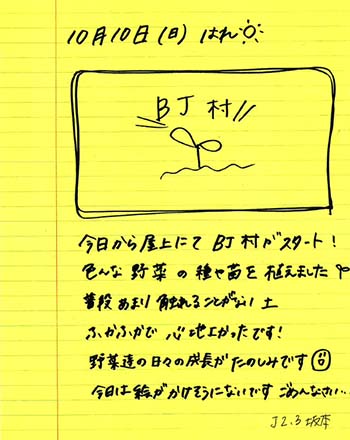 10月10日(日) はれ
BJ村
今日から屋上にて BJ村がスタート!
色んな野菜の種や苗を植えました
普段あまり触れることがない土
ふかふかで心地よかったです!
野菜達の日々の成長がたのしみです
今日は絵がかけそうにないです ごめんなさい...
J2.3 坂本